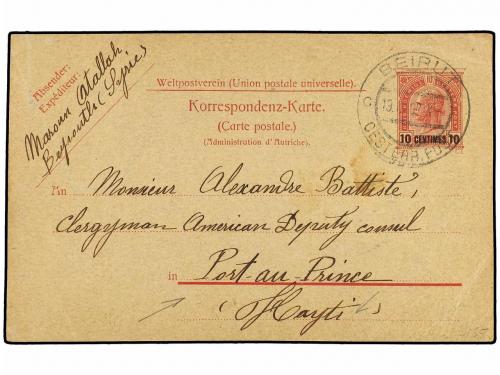 Absender:
Expéditeur:
Atallah
Beyrouth (Syrie)
Weltpostverein (Union postale universelle).
Korrespondenz-Karte.
(Carte postale.)
(Administration d'Autriche.)
BEIRUT
10 CENTIMES 10
An Monsieur Alexandre Battiste,
Clergyman American Deputy consul
in Port-au-Prince
(Hayti)